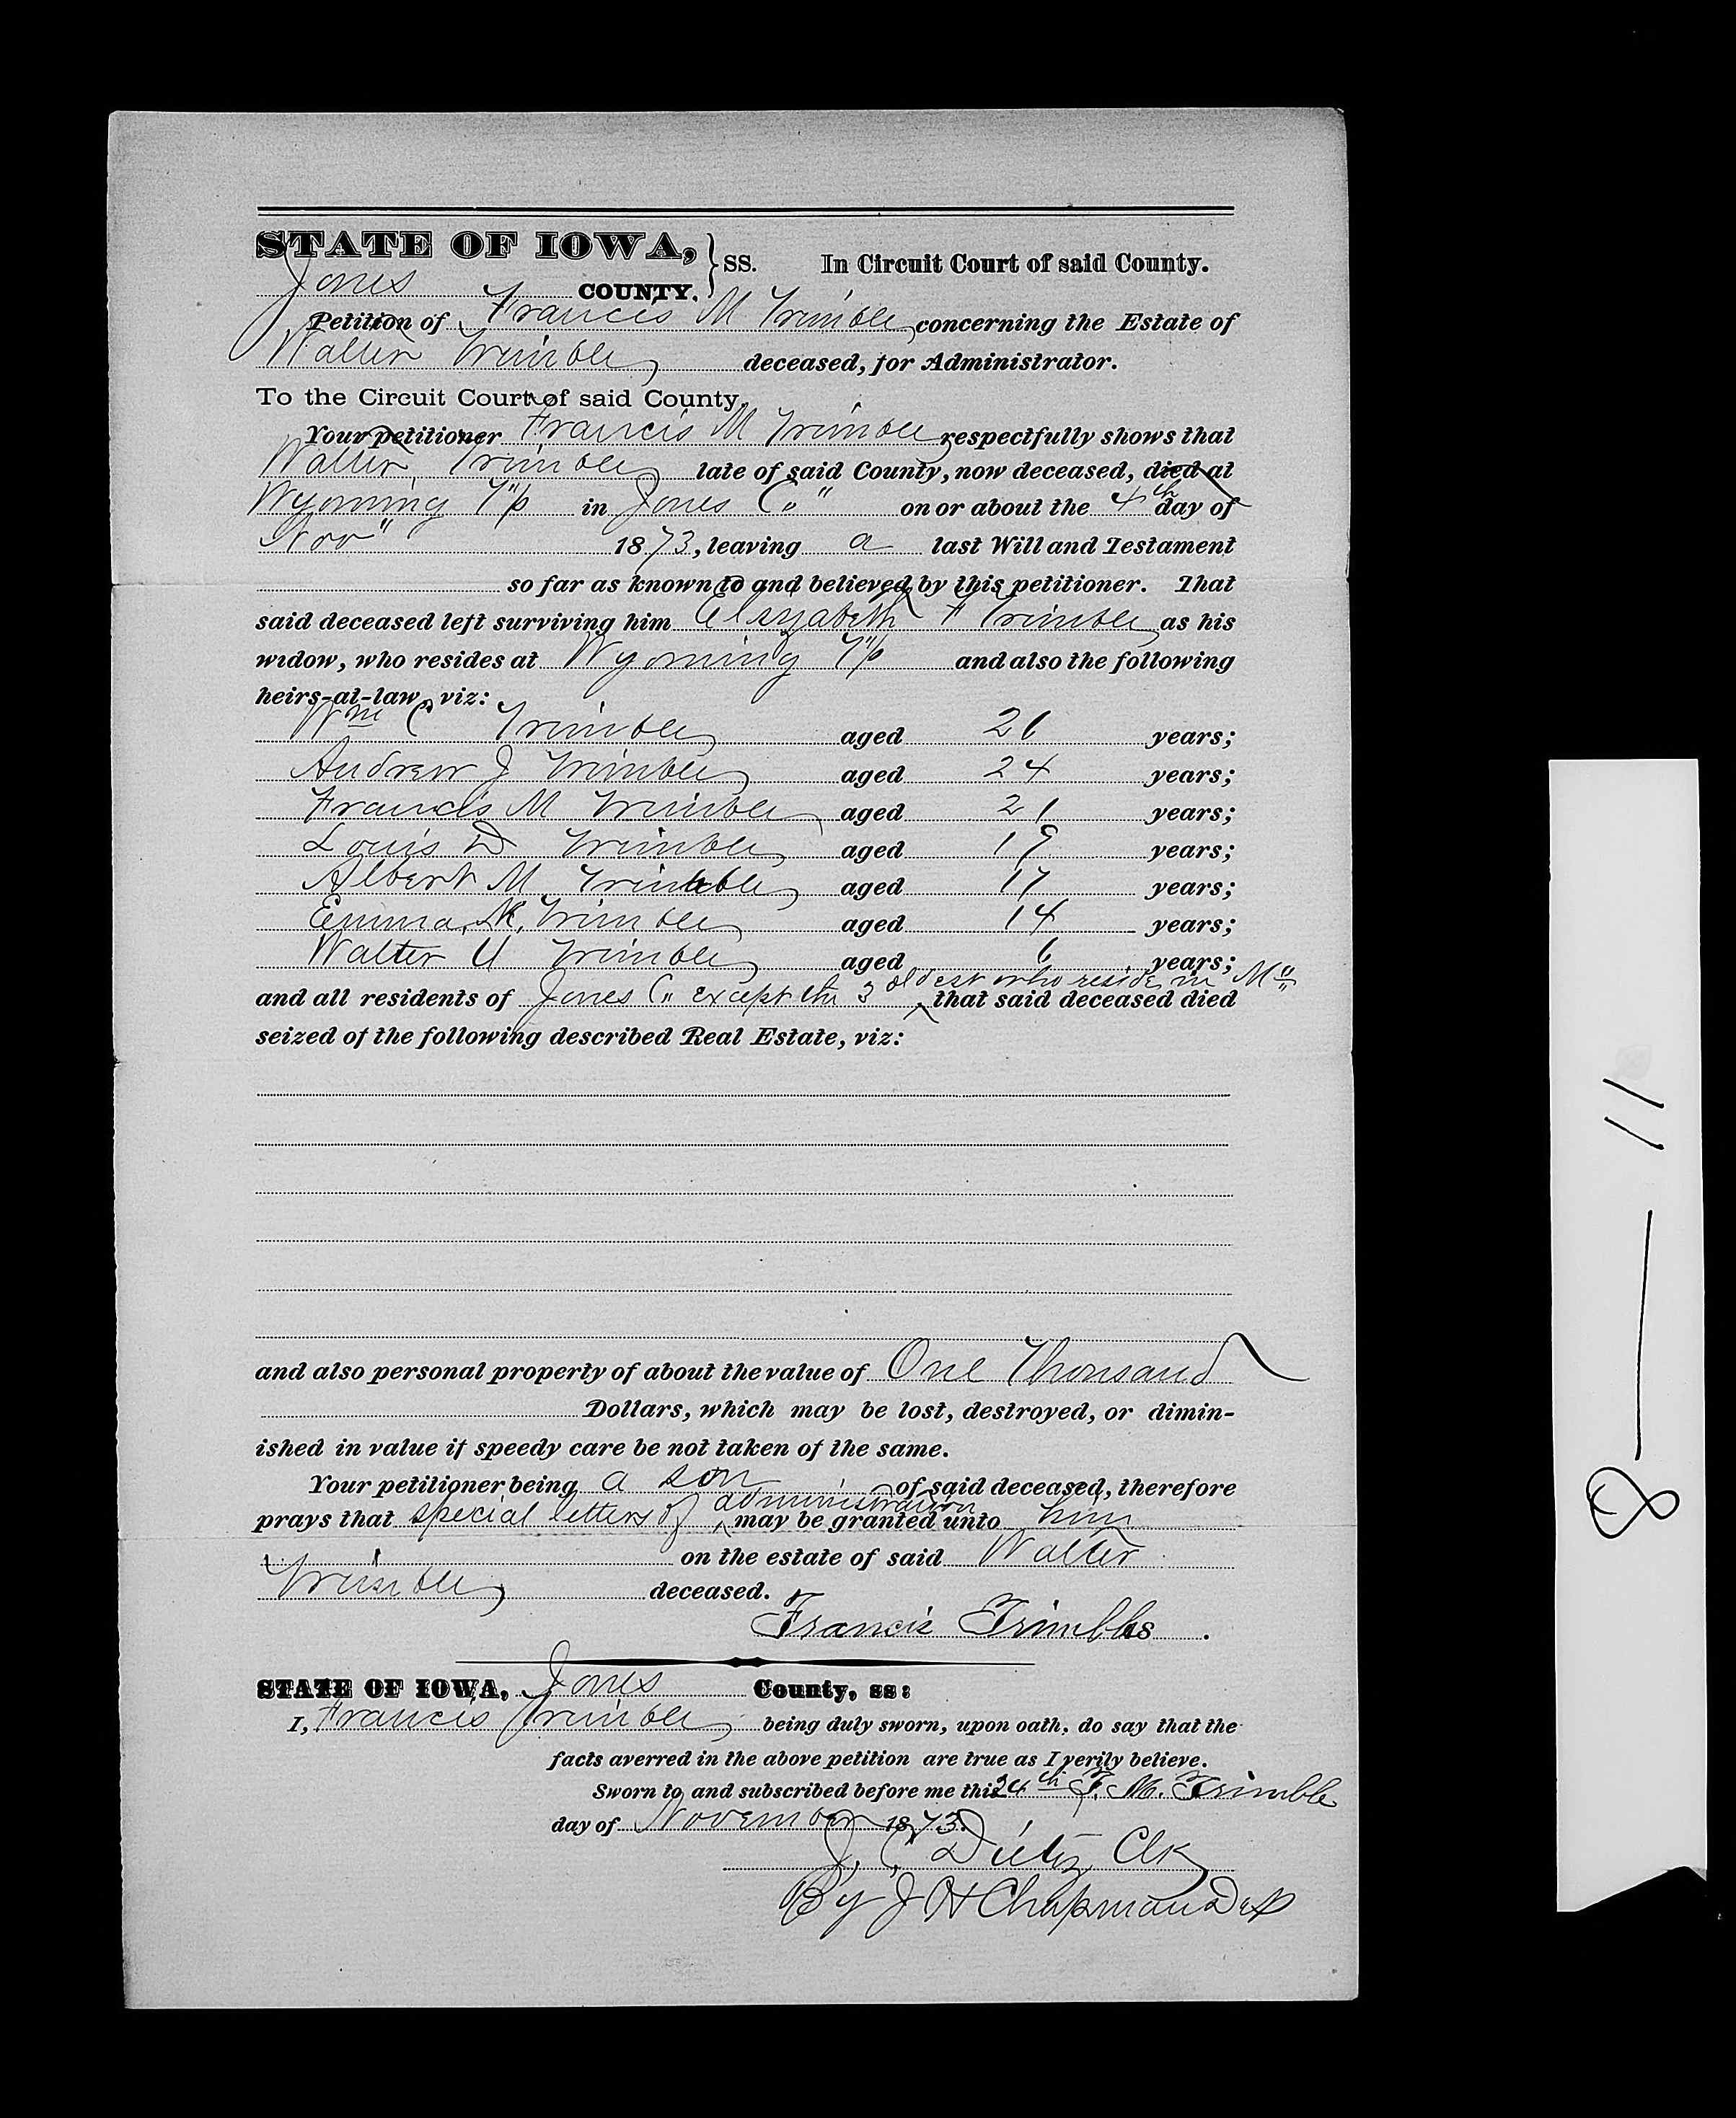 STATE OF IOWA, } SS. In Circuit Court of said County.
Jones COUNTY.
Petition of Francis M Trimble, concerning the Estate of
Walter Trimble, deceased, for Administrator.
To the Circuit Court of said County.
Your petitioner Francis M Trimble, respectfully shows that
Walter Trimble, late of said County, now deceased, died at
Wyoming T"p in Jones Co" on or about the 4th day of
Nov" 1873, leaving a last Will and Testament
so far as known to and believed by this petitioner. That
said deceased left surviving him Elizabeth F Trimble, as his
widow, who resides at Wyoming T"p and also the following
heirs-at-law, viz:
Wm C Trimble, aged 26 years;
Andrew J Trimble, aged 24 years;
Francis M Trimble, aged 21 years;
Louis D Trimble, aged 19 years;
Albert M. Trimble, aged 17 years;
Emma K. Trimble, aged 14 years;
Walter U Trimble, aged 6 years;
and all residents of Jones Co" except the 3 oldest who reside in Mo" that said deceased died
seized of the following described Real Estate, viz:
and also personal property of about the value of One Thousand
Dollars, which may be lost, destroyed, or dimin-
ished in value if speedy care be not taken of the same.
Your petitioner being a son of said deceased, therefore
prays that special letters of administration may be granted unto him
on the estate of said Walter
Trimble, deceased.
Francis Trimbles.
STATE OF IOWA, Jones County, ss:
I, Francis Trimble, being duly sworn, upon oath, do say that the
facts averred in the above petition are true as I verily believe.
Sworn to and subscribed before me this 24th F. M. Trimble
day of November 1873.
J. C. Dietz, Clk
By J H Chapman Dep
8 — 11